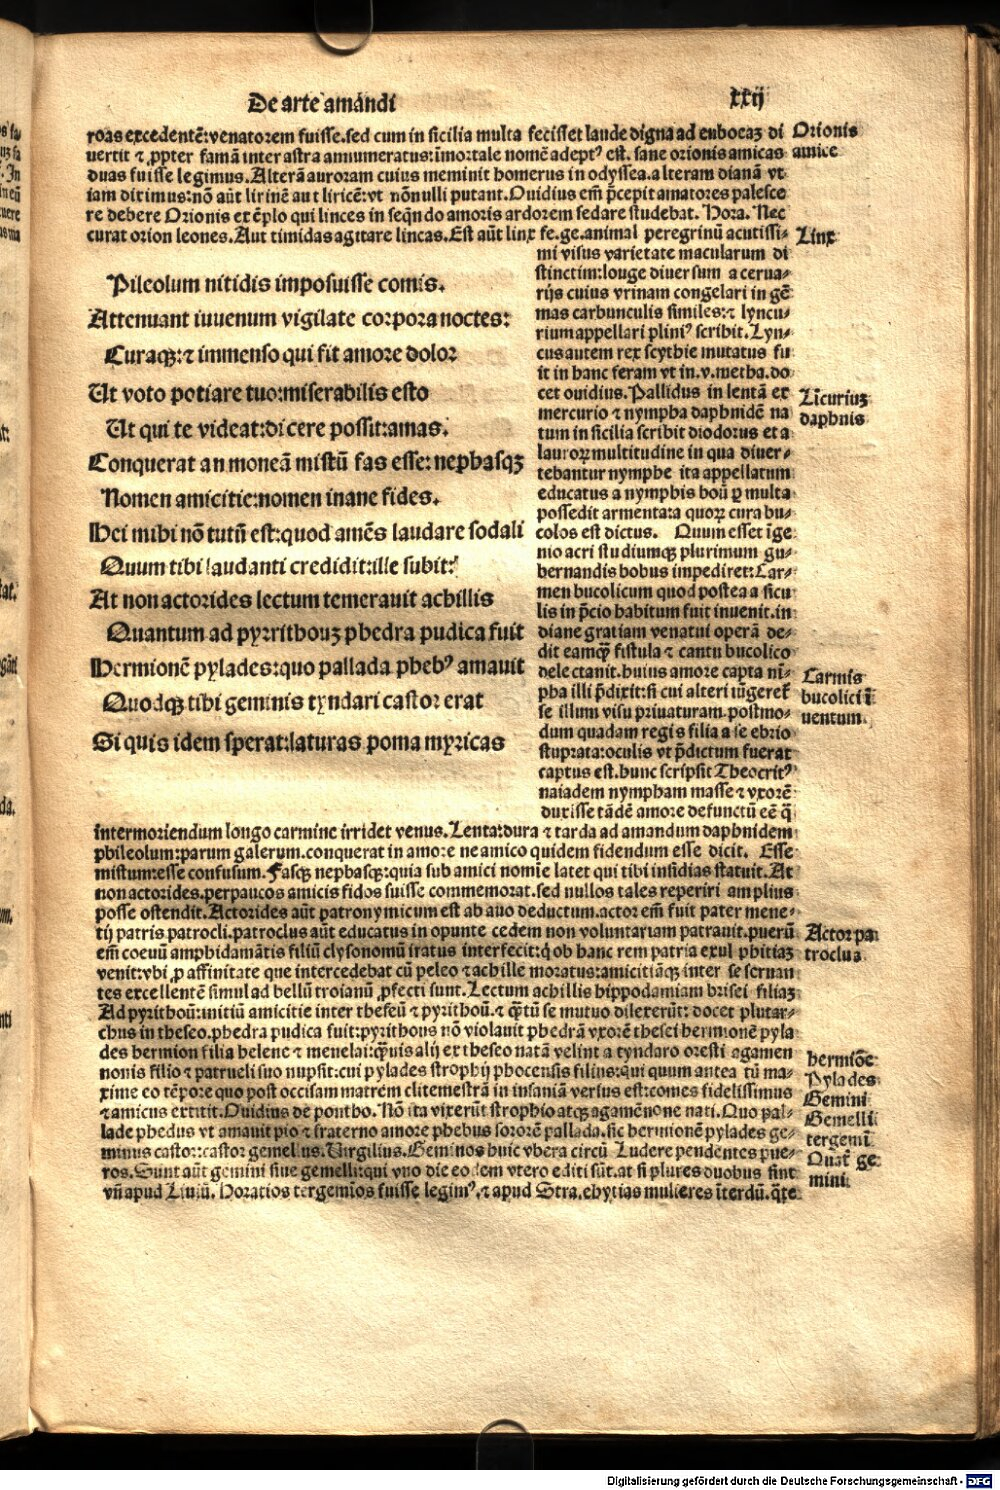 De arte amandi
xxij
roas excedentē: venatorem fuisse. sed cum in sicilia multa fecisset laude digna ad euboeaʒ di
uertit ⁊ ꝓpter famā inter astra annumeratus: īmortale nomē adeptꝰ est. sane orionis amicas
duas fuisse legimus. Alterā auroram cuius meminit homerus in odyssea. alteram dianā vt
iam diximus: nō aūt lirinē aut liricē: vt nōnulli putant. Ouidius em̄ p̄cepit amatores palesce
re debere Orionis exēplo qui linces in seqn̄do amoris ardorem sedare studebat. Hora. Nec
curat orion leones. Aut timidas agitare lincas. Est aūt linx fe. ge. animal peregrinū acutissi⸗
Orionis
amice
Linx
Pileolum nitidis imposuisse comis.
Attenuant iuuenum vigilate corpora noctes:
Curaqꝫ: ⁊ immenso qui fit amore dolor
Ut voto potiare tuo: miserabilis esto
Ut qui te videat: dicere possit: amas.
Conquerar an moneā mistū fas esse: nephasqꝫ
Nomen amicitie: nomen inane fides.
Hei mihi nō tutū est: quod amēs laudare sodali
Quum tibi laudanti credidit: ille subit:
At non actorides lectum temerauit achillis
Quantum ad pyrrithouʒ phedra pudica fuit
Hermionē pylades: quo pallada phebꝰ amauit
Quodqꝫ tibi geminis tyndari castor erat
Si quis idem sperat: laturas poma myricas
mi visus varietate macularum di
stinctim: longe diuersum a cerua⸗
rijs cuius vrinam congelari in gē
mas carbunculis similes: ⁊ lyncu⸗
rium appellari pliniꝰ scribit. Lyn⸗
cus autem rex scythie mutatus fu
it in hanc feram vt in. v. metha. do
cet ouidius. Pallidus in lentā ex
mercurio ⁊ nympha daphnidē na
tum in sicilia scribit diodorus et a
lauroꝝ multitudine in qua diuer⸗
tebantur nymphe ita appellatum
educatus a nymphis boū ꝙ multa
possedit armenta: a quoꝝ cura bu⸗
colos est dictus. Quum esset īge
nio acri studiumqꝫ plurimum gu⸗
bernandis bobus impediret: Car⸗
men bucolicum quod postea a sicu
lis in p̄cio habitum fuit inuenit. in
diane gratiam venatui operā de⸗
dit eamqꝫ fistula ⁊ cantu bucolico
delectauit. huius amore capta nī⸗
pha illi p̄dixit: si cui alteri iūgeret̄
se illum visu priuaturam. postmo⸗
dum quadam regis filia a se ebrio
stuprata: oculis vt p̄dictum fuerat
captus est. hunc scripsit Theocritꝰ
naiadem nympham masse ⁊ vxorē
duxisse tādē amore defunctū eē q̄
Licuriuʒ
daphnis
Carmīs
bucolici ī
uentum.
intermoriendum longo carmine irridet venus. Lenta: dura ⁊ tarda ad amandum daphnidem
phileolum: parum galerum. conquerar in amore ne amico quidem fidendum esse dicit. Esse
mistum: esse confusum. Fasqꝫ nephasqꝫ: quia sub amici nomīe latet qui tibi insidias statuit. At
non actorides. perpaucos amicis fidos fuisse commemorat. sed nullos tales reperiri amplius
posse ostendit. Actorides aūt patronymicum est ab auo deductum. actor em̄ fuit pater mene⸗
tij patris patrocli. patroclus aūt educatus in opunte cedem non voluntariam patrauit. puerū
em̄ coeuū amphidamātis filiū clysonomū iratus interfecit: q̇ ob hanc rem patria exul phitiaʒ
venit: vbi ꝓ affinitate que intercedebat cū peleo ⁊ achille moratus: amicitiāqꝫ inter se seruan
tes excellentē simul ad bellū troianū ꝓfecti sunt. Lectum achillis hippodamiam brisei filiaʒ
Ad pyrithoū: initiū amicitie inter theseū ⁊ pyrithoū. ⁊ qꝫtū se mutuo dilexerūt: docet plutar⸗
chus in theseo. phedra pudica fuit: pyrithous nō violauit phedrā vxorē thesei hermionē pyla
des hermion filia helene ⁊ menelai: qꝫuis alij ex theseo natā velint a tyndaro oresti agamen
nonis filio ⁊ patrueli suo nupsit: cui pylades strophij phocensis filius: qui quum antea tū ma⸗
xime eo tēpore quo post occisam matrem clitemestrā in insaniā versus est: comes fidelissimus
⁊ amicus extitit. Ouidius de pontho. Nō ita vixerūt strophio atqꝫ agamēnone nati. Quo pal⸗
lade phedus vt amauit pio ⁊ fraterno amore phebus sororē pallada. sic hermionē pylades ge⸗
minus castor: castor gemellus. Uirgilius. Geminos huic vbera circū Ludere pendentes pue⸗
ros. Sunt aūt gemini siue gemelli: qui vno die eodem vtero editi sūt. at si plures duobus sint
vn̄ apud Liuiū. Horatios tergemīos fuisse legimꝰ. ⁊ apud Stra. ehytias mulieres īterdū. q̄te
Actor pa
troclua
hermiōe
Pylades
Gemini
Gemelli
tergemī
Quat̄ ge
mini
Digitalisierung gefördert durch die Deutsche Forschungsgemeinschaft - DFG